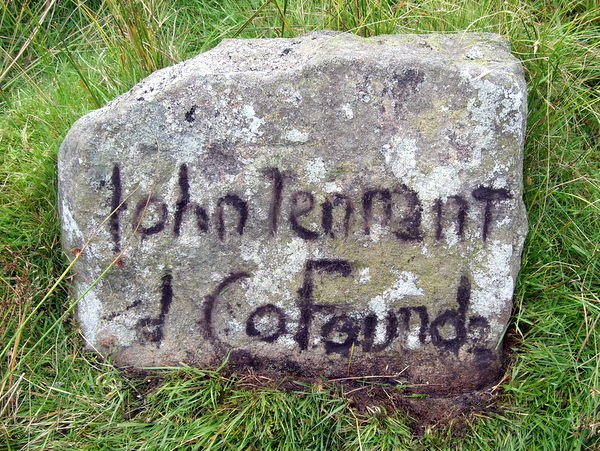 John Tennant
d Co Found